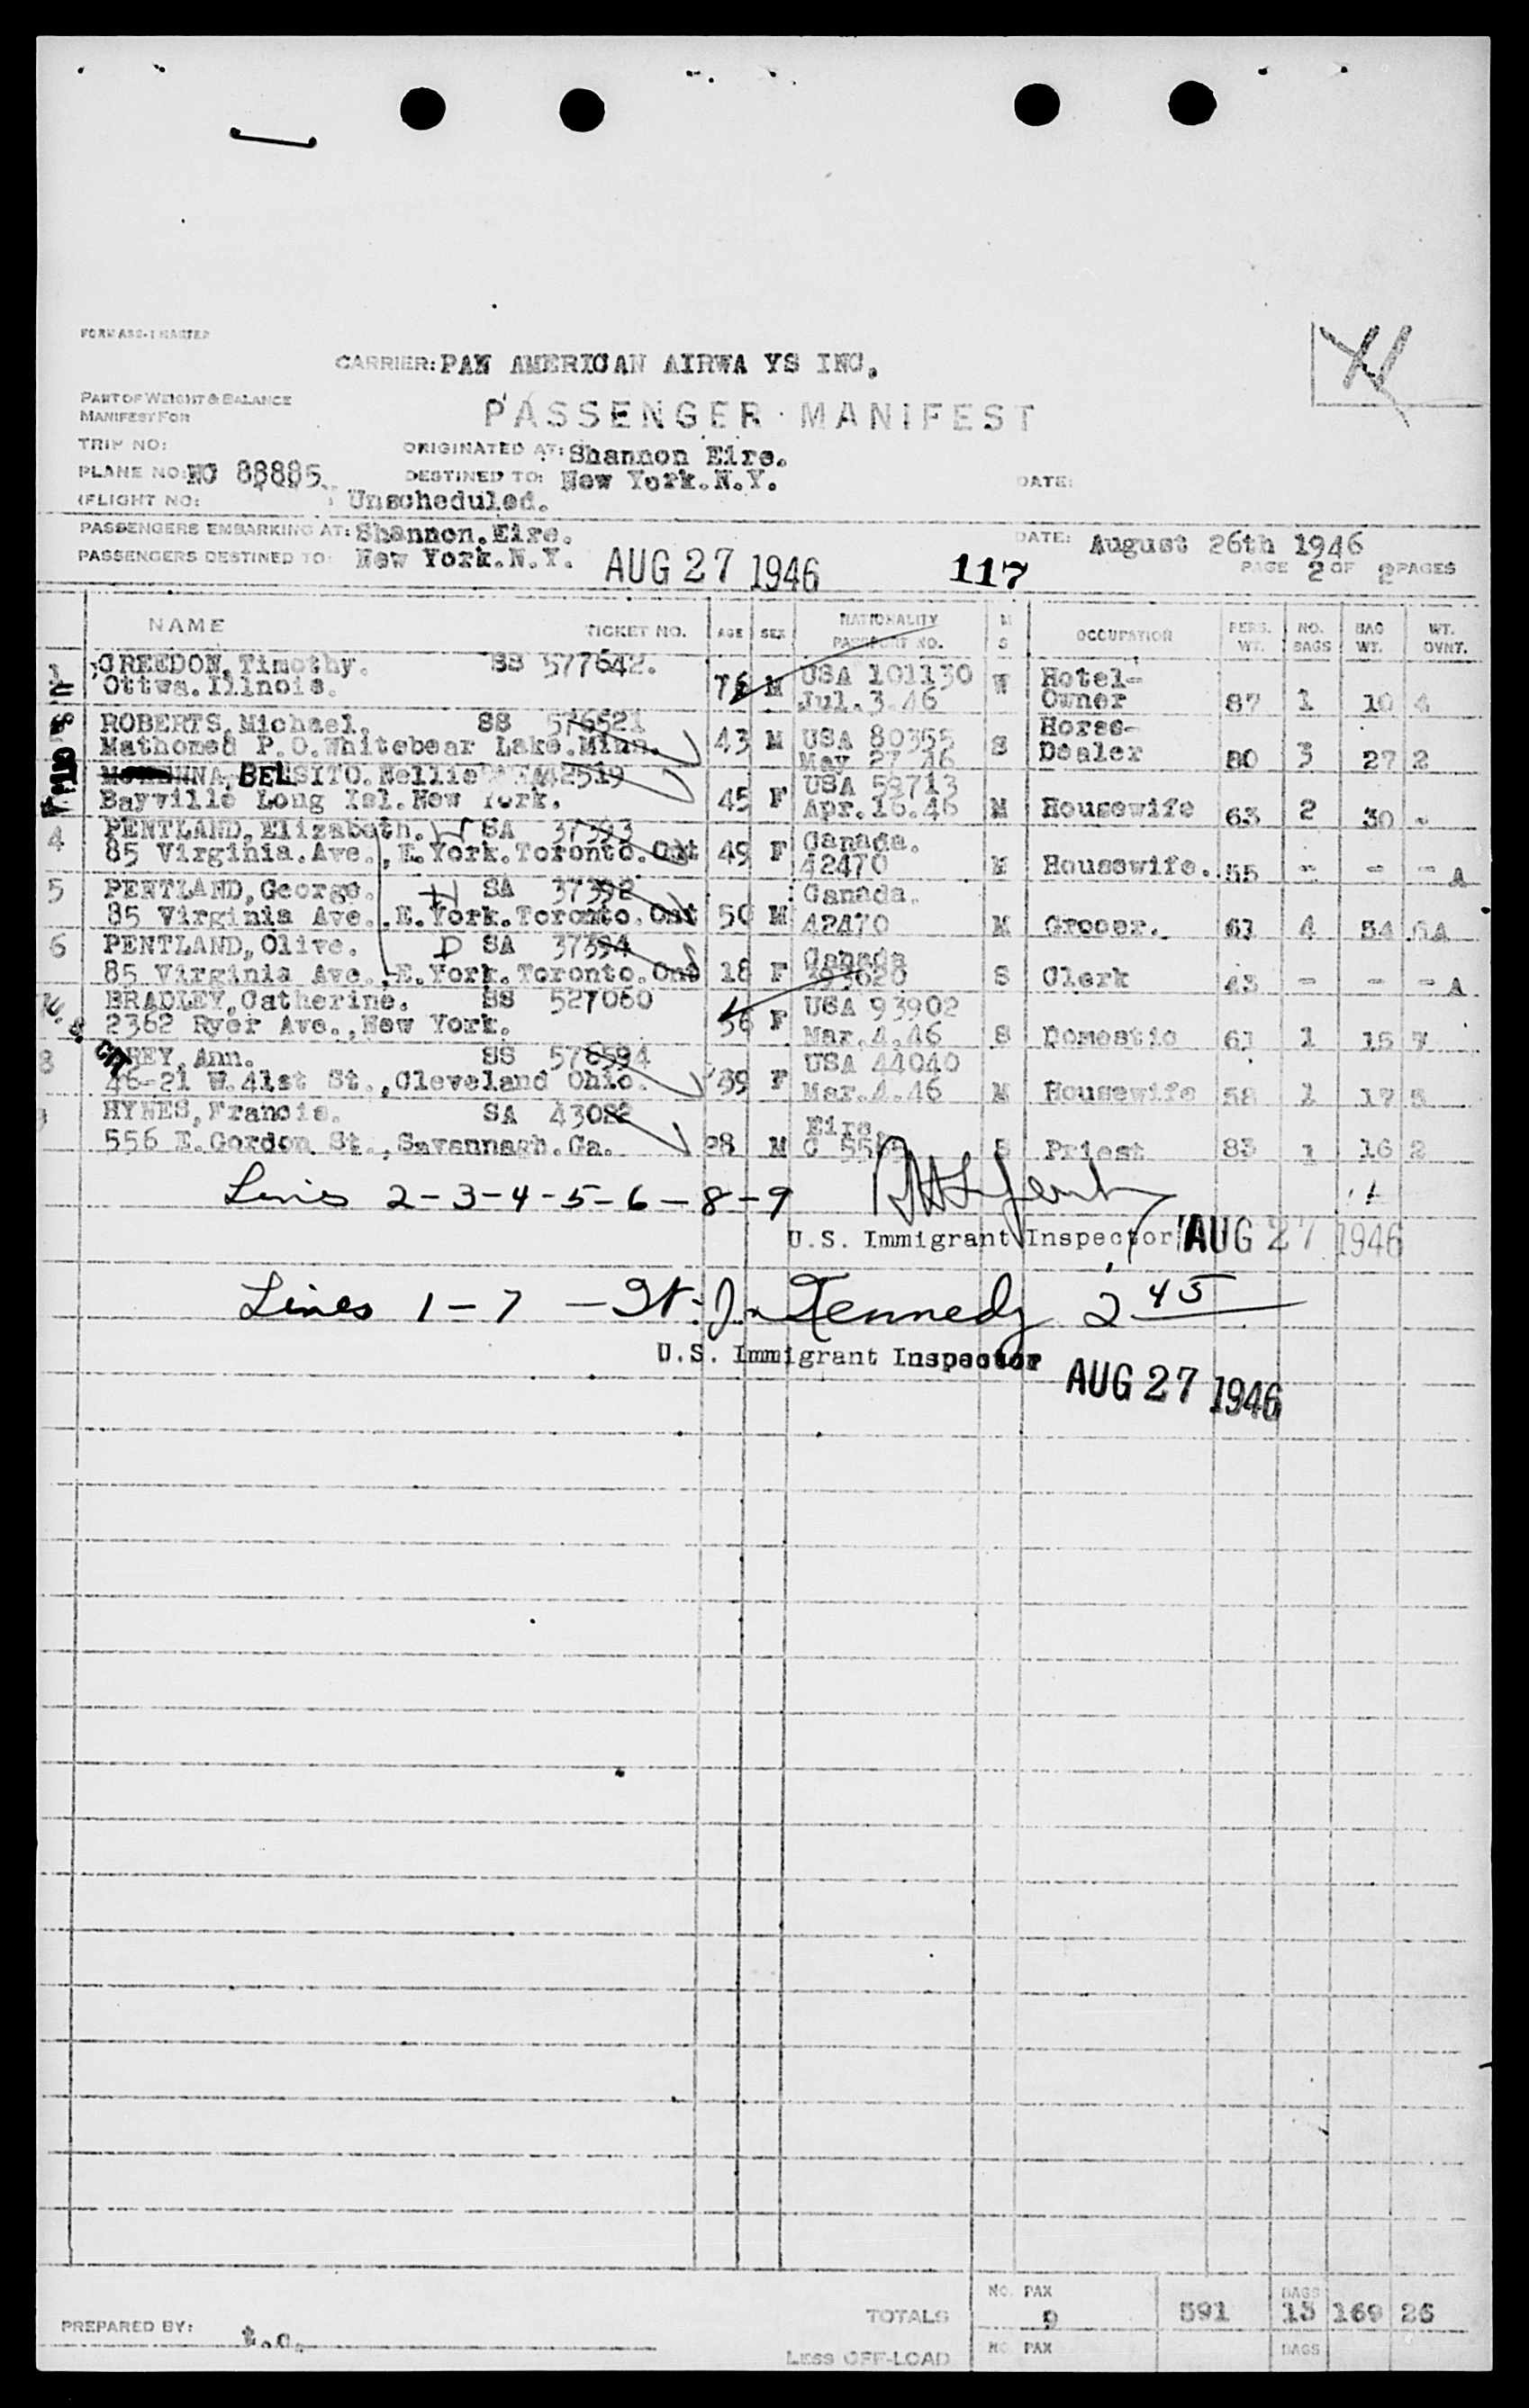 FORM ASS-1 MASTER
CARRIER: PAN AMERICAN AIRWA YS INC.
PART OF WEIGHT & BALANCE
MANIFEST FOR
PASSENGER MANIFEST
TRIP NO:
ORIGINATED AT: Shannon Eire.
PLANE NO: NC 88885.
DESTINED TO: New York.N.Y.
DATE:
(FLIGHT NO: Unscheduled.
PASSENGERS EMBARKING AT: Shannon.Eire.
DATE: August 26th 1946
PASSENGERS DESTINED TO: New York.N.Y. AUG 27 1946 117
PAGE 2 OF 2 PAGES
NAME TICKET NO. AGE SEX NATIONALITY PASSPORT NO. M S OCCUPATION PERS. WT. NO. BAGS BAG WT. WT. OVNT.
1 CREEDON, Timothy. SS 577642. USA 101130 Hotel-
Ottwa.Illnois. 76 M Jul.3.46 W Owner 87 1 10 4
ROBERTS, Michael. SS 576521 Horse-
Mathomed P.O.Whitebear Lake.Minn. 43 M USA 80355 S Dealer 80 3 27 2
May 27 46
BELSITO.Nellie 42519 USA 59713
Bayville Long Isl.New York. 45 F Apr.16.46 M Housewife 63 2 30 -
4 PENTLAND, Elizabeth. W SA 37393 Canada.
85 Virginia.Ave.,E.York.Toronto.Ont 49 F 42470 M Housewife. 55 - - - A
5 PENTLAND, George. H SA 37392 Canada.
85 Virginia Ave.,E.York.Toronto.Ont 50 M 42470 M Grocer. 61 4 54 A
6 PENTLAND, Olive. D SA 37394 Canada
85 Virginia Ave.,E.York.Toronto.Ont 18 F 393620 S Clerk 43 - - - A
BRADLEY, Catherine. SS 527060 USA 93902
2362 Ryer Ave.,New York. 56 F Mar.4.46 S Domestic 61 1 15 7
8 Ann. SS 578594 USA 44040
46-21 W.41st St.,Cleveland Ohio. 39 F Mar.4.46 M Housewife 58 1 17 5
HYNES, Francis. SA 43082 Eire
556 E.Gordon St.,Savannagh.Ga. 28 M S Priest 83 1 16 2
Lines 2-3-4-5-6-8-9
U.S. Immigrant Inspector AUG 27 1946
Lines 1-7 - Kennedy 2 45
U.S. Immigrant Inspector
AUG 27 1946
NO. PAX BAGS
TOTALS 9 591 15 169 26
PREPARED BY:
LESS OFF-LOAD NO PAX BAGS